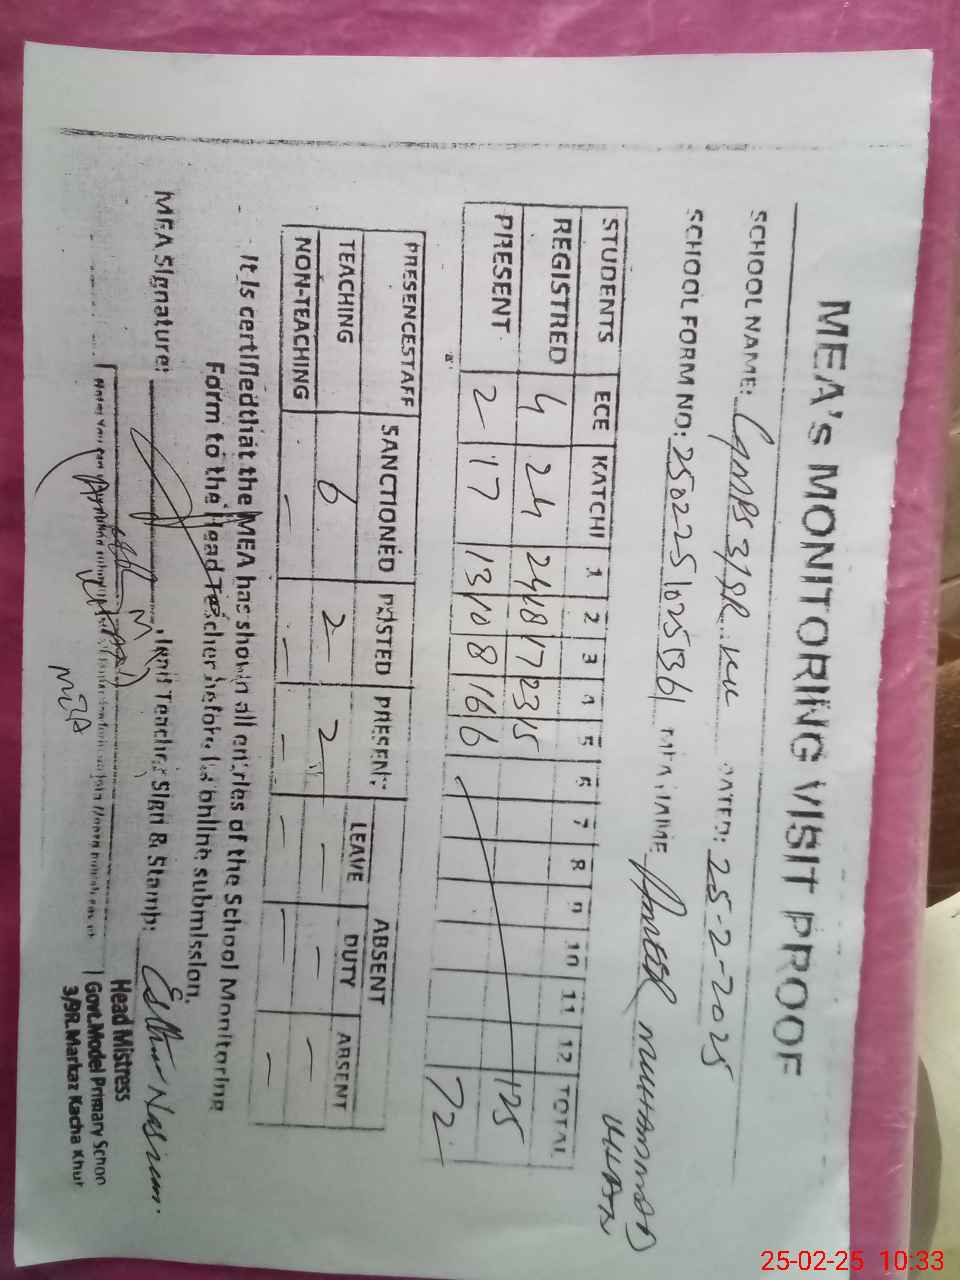 MEA's MONITORING VISIT PROOF
SCHOOL NAME: GMPS 3/9R KK DATED: 25-2-2025
SCHOOL FORM NO: MEA NAME AMEER MUHAMMAD
STUDENTS ECE KATCHI 1 2 3 4 5 6 7 8 9 10 11 12 TOTAL
REGISTRED 4 24 24 18 17 23 15 125
PRESENT 2 17 13 10 8 16 6 72
PRESENCESTAFF SANCTIONED POSTED PRESENT ABSENT
LEAVE DUTY ABSENT
TEACHING 6 2 2 - - -
NON-TEACHING - - - - - -
It is certifiedthat the MEA has shown all entries of the School Monitoring
Form to the Head Teacher before its online submission.
MEA Signature: Teacher Sign & Stamp: Esther Nasreen.
Note: You can
MEA
Head Mistress
Govt.Model Primary School
3/9R.Markaz Kacha Khuh
25-02-25 10:33